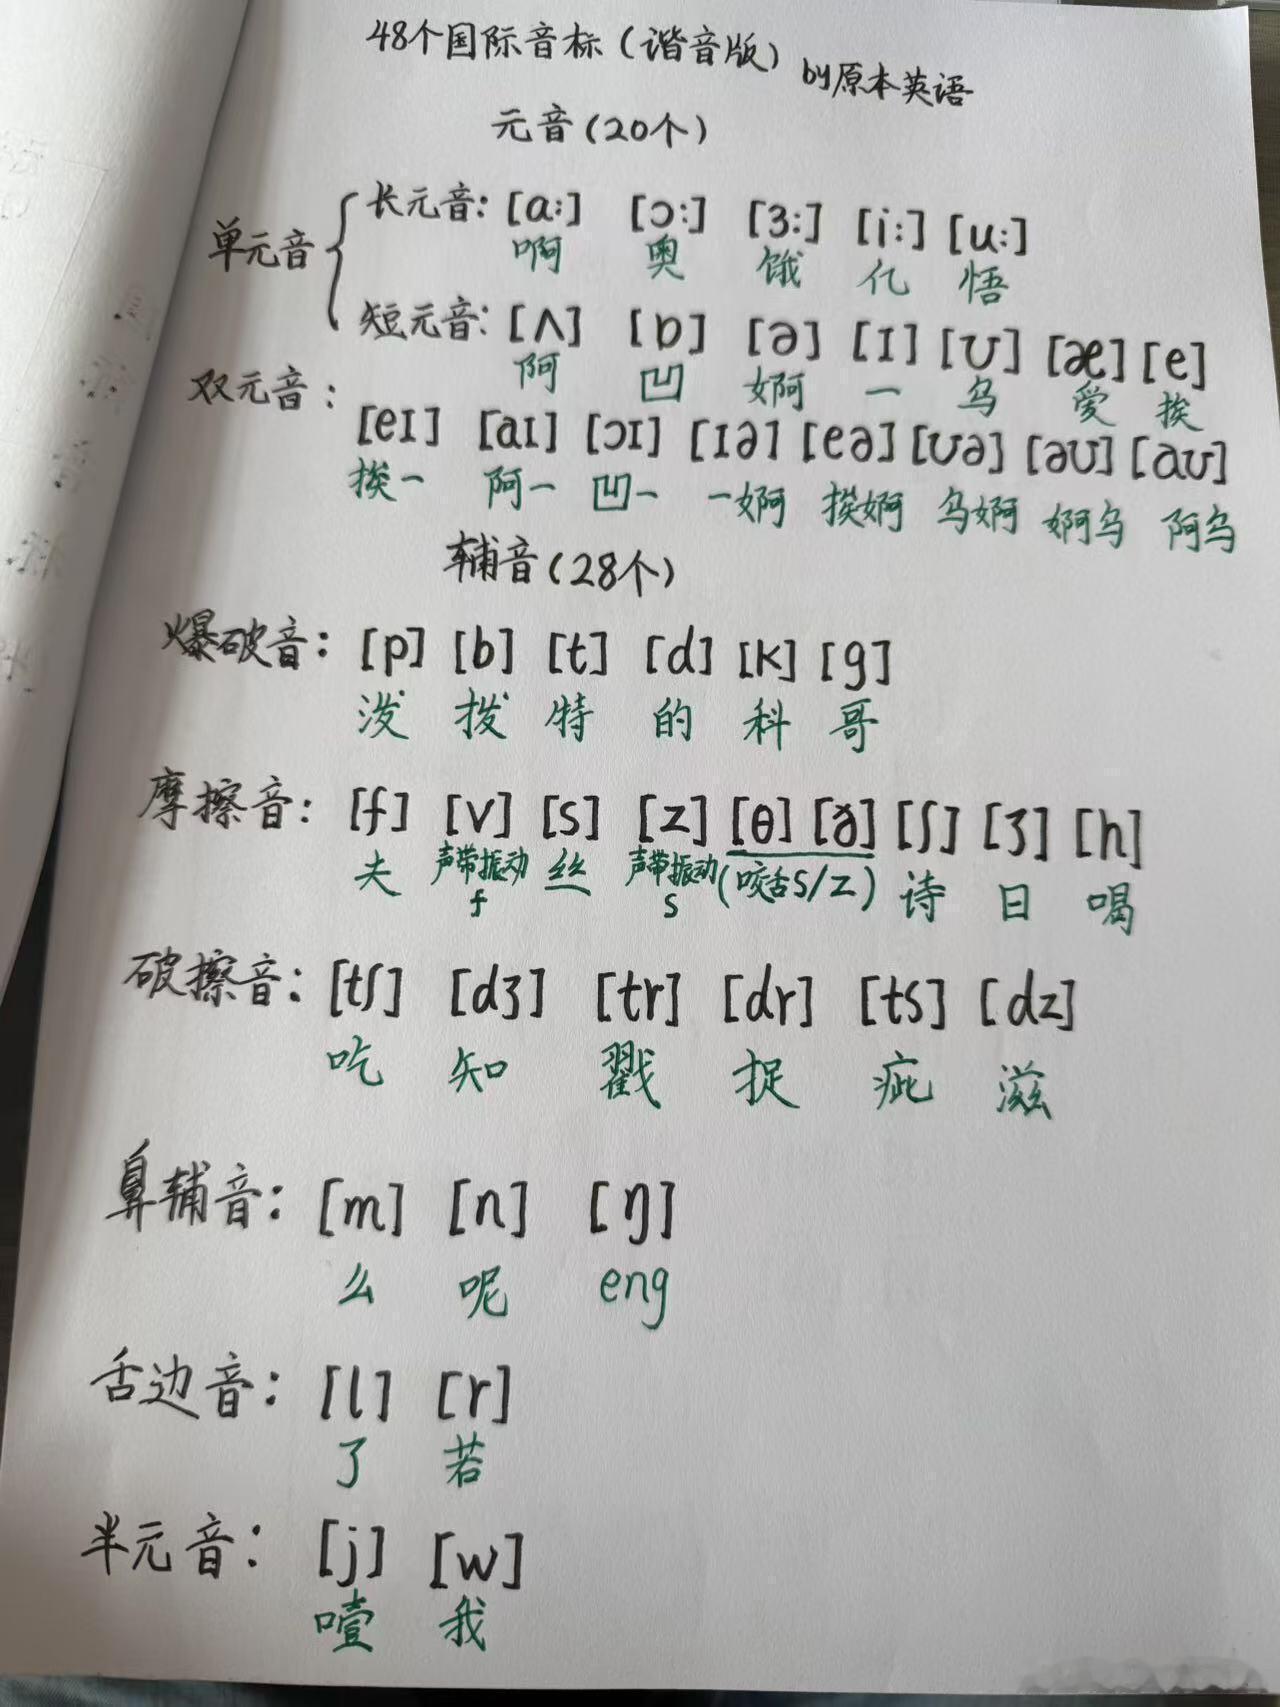 48个国际音标(谐音版) by原本英语
元音(20个)
单元音
长元音: [a:] [ɔ:] [3:] [i:] [u:]
啊 奥 饿 亿 悟
短元音: [ʌ] [ɒ] [ə] [ɪ] [ʊ] [æ] [e]
阿 凹 婀 一 乌 爱 挨
双元音:
[eɪ] [aɪ] [ɔɪ] [ɪə] [eə] [ʊə] [əʊ] [aʊ]
挨一 阿一 凹一 一婀 挨婀 乌婀 婀乌 阿乌
辅音(28个)
爆破音: [p] [b] [t] [d] [k] [g]
泼 拨 特 的 科 哥
摩擦音: [f] [v] [s] [z] [θ] [ð] [ʃ] [ʒ] [h]
夫 声带振动f 丝 声带振动s (咬舌s/z) 诗 日 喝
破擦音: [tʃ] [dʒ] [tr] [dr] [ts] [dz]
吃 知 戳 捉 疵 滋
鼻辅音: [m] [n] [ŋ]
么 呢 eng
舌边音: [l] [r]
了 若
半元音: [j] [w]
噎 我